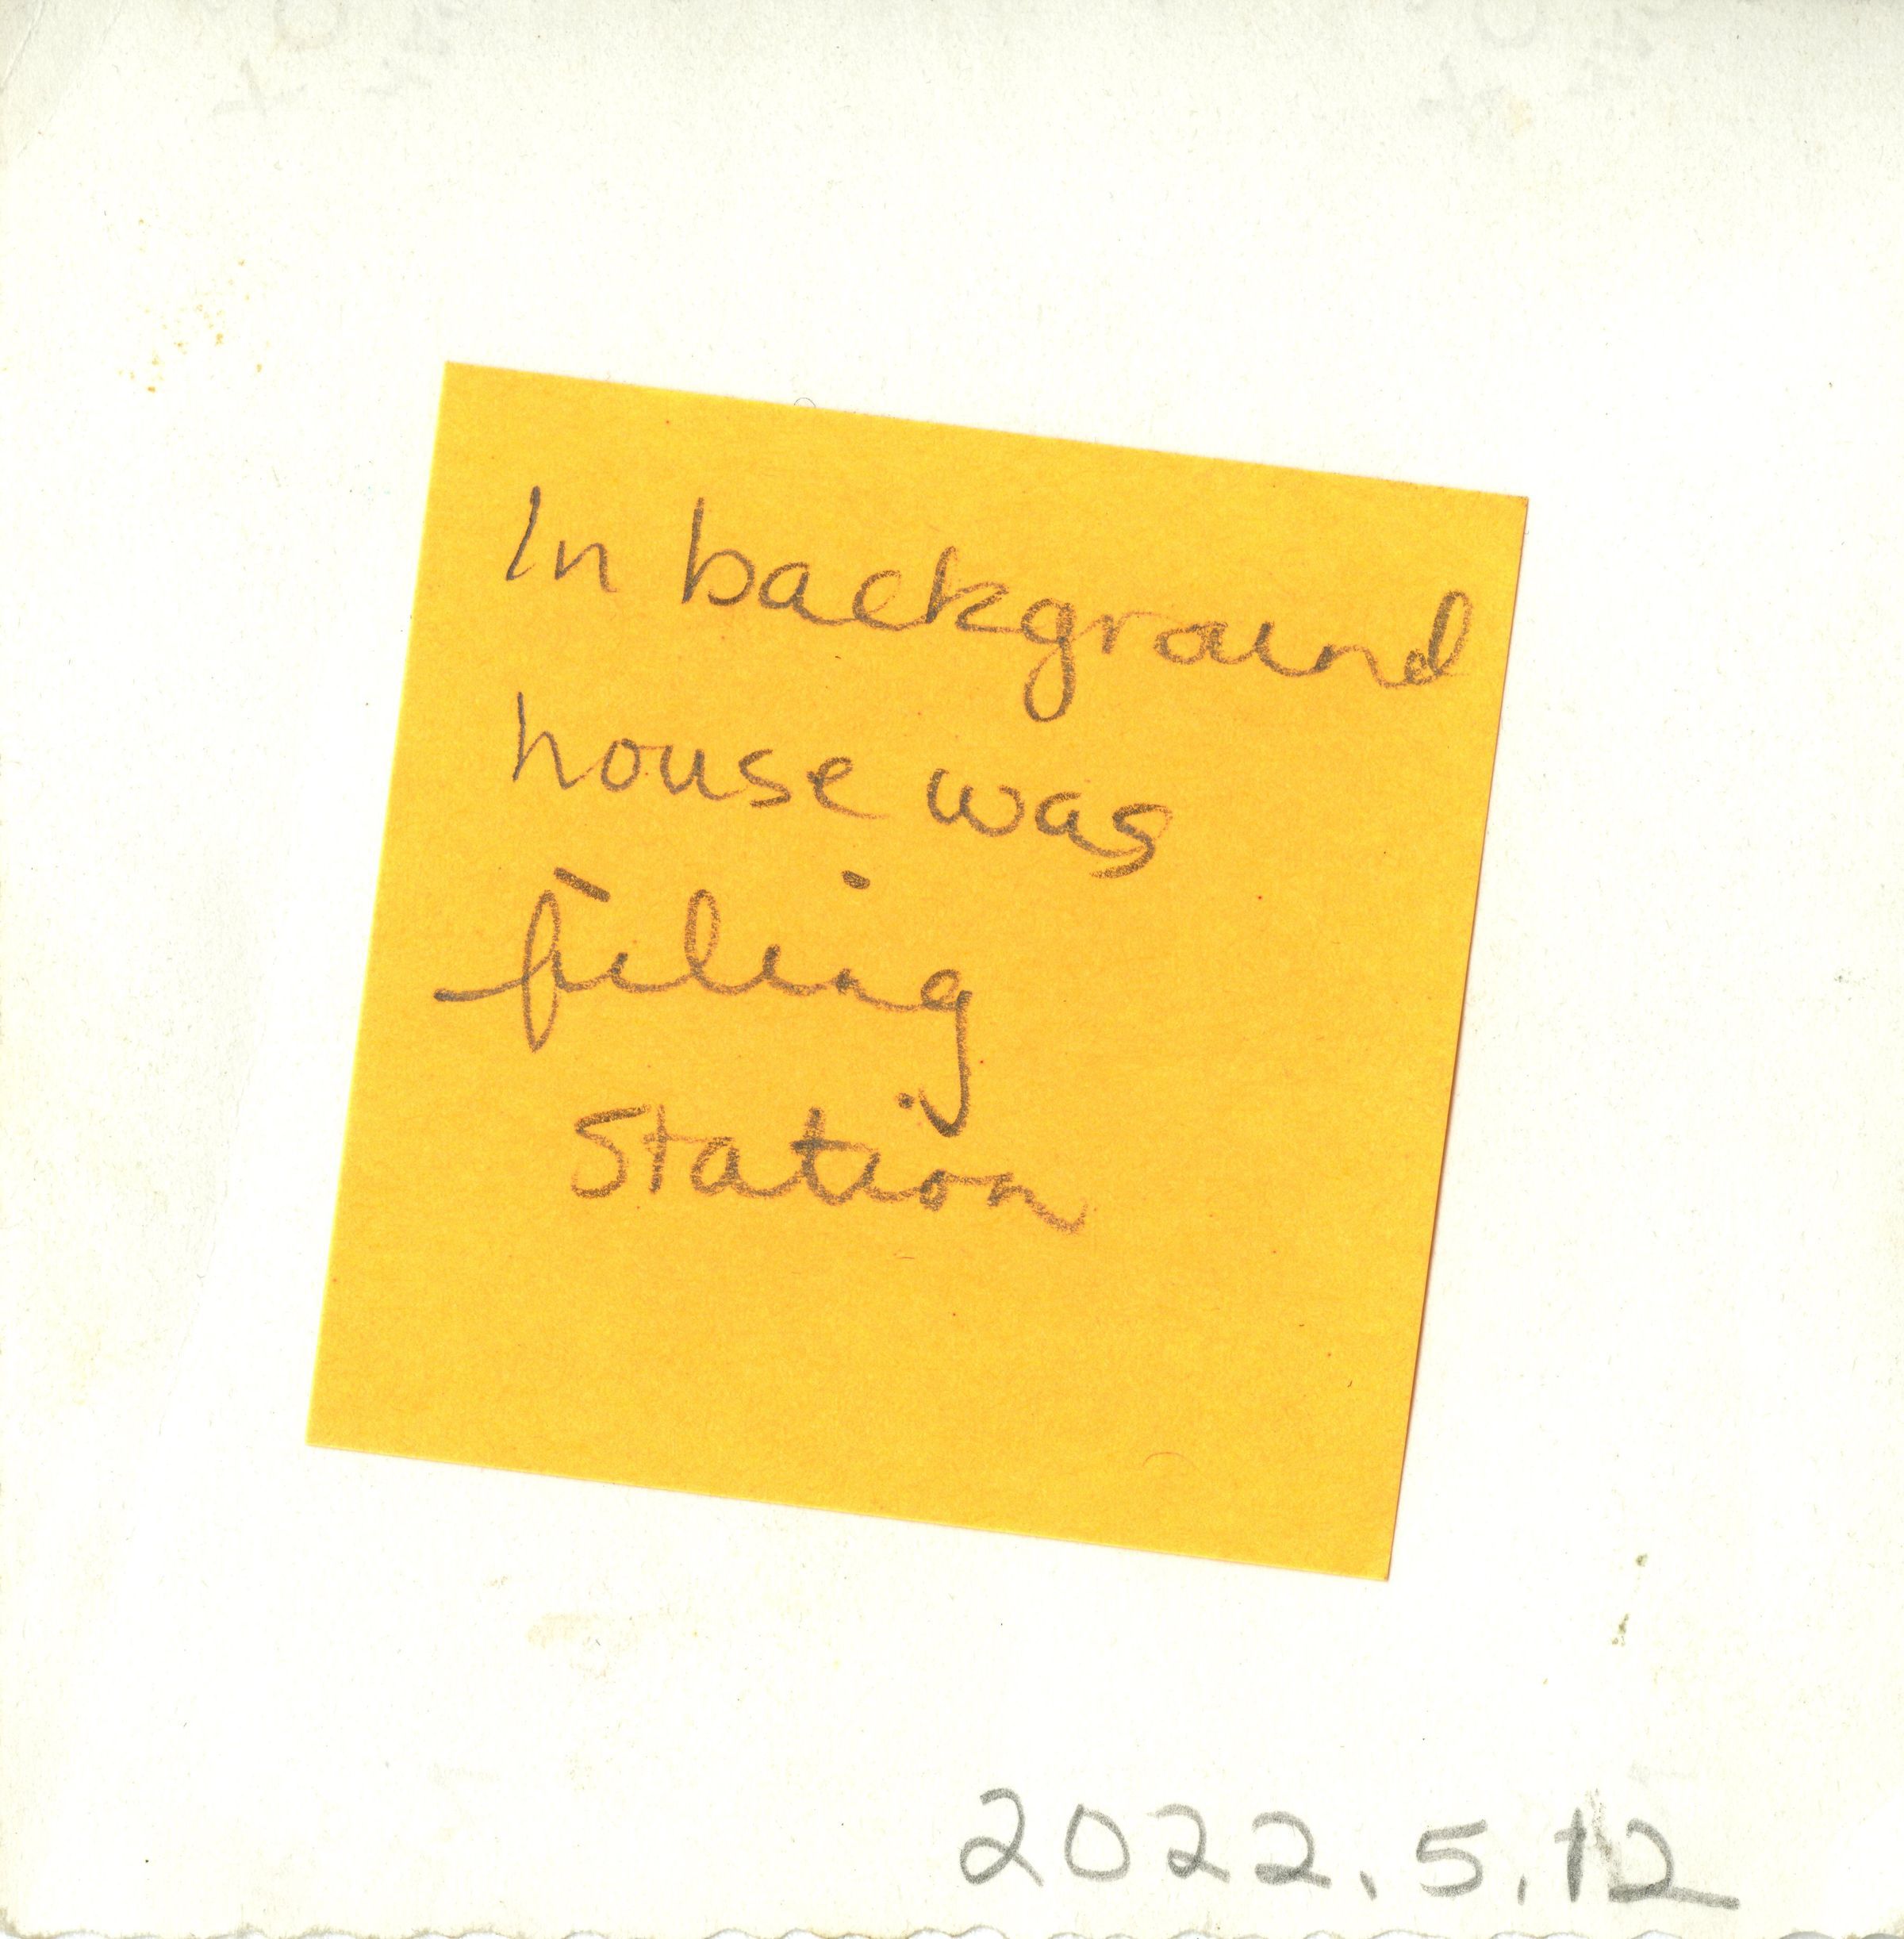 In background
house was
filing
Station
2022.5.12